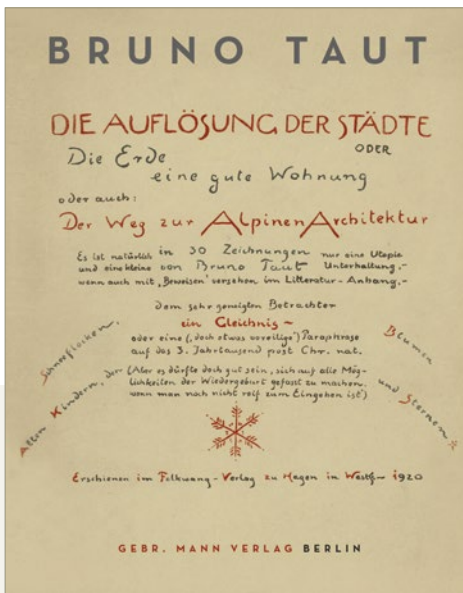 BRUNO TAUT
DIE AUFLÖSUNG DER STÄDTE
ODER
Die Erde
eine gute Wohnung
oder auch:
Der Weg zur Alpinen Architektur
Es ist natürlich in 30 Zeichnungen nur eine Utopie
und eine kleine von Bruno Taut Unterhaltung,-
wenn auch mit „Beweisen" versehen im Litteratur-Anhang,-
dem sehr geneigten Betrachter
ein Gleichnis ~
oder eine („doch etwas voreilige") Paraphrase
auf das 3. Jahrtausend post Chr. nat.
(Aber es dürfte doch gut sein, sich auf alle Mög-
lichkeiten der Wiedergeburt gefasst zu machen,
wenn man noch nicht reif zum Eingehen ist)
Allen Kindern, der Schneeflocken,
Blumen und Sternen
Erschienen im Folkwang-Verlag zu Hagen in Westf~ 1920
GEBR. MANN VERLAG BERLIN